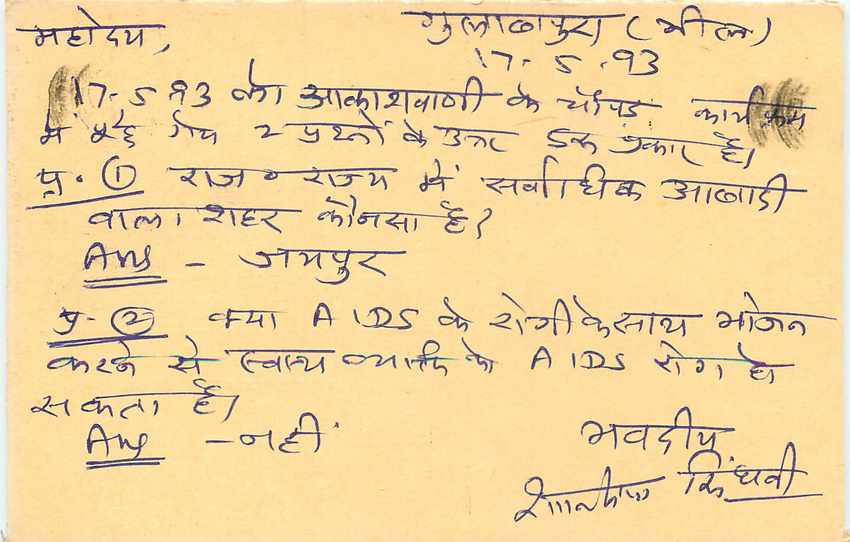 महोदय, गुलाबपुरा (भील)
17-5-93
17-5 93 को आकाशवाणी के चौपड़ कार्यक्रम
में पूछे गये 2 प्रश्नों के उत्तर इस प्रकार है।
प्र. ① राज० राज्य में सर्वाधिक आबादी
वाला शहर कौनसा है?
Ans - जयपुर
प्र- ② क्या AIDS के रोगी के साथ भोजन
करने से स्वस्थ व्यक्ति के AIDS रोग हो
सकता है।
Ans - नहीं
भवदीय
सिंघवी